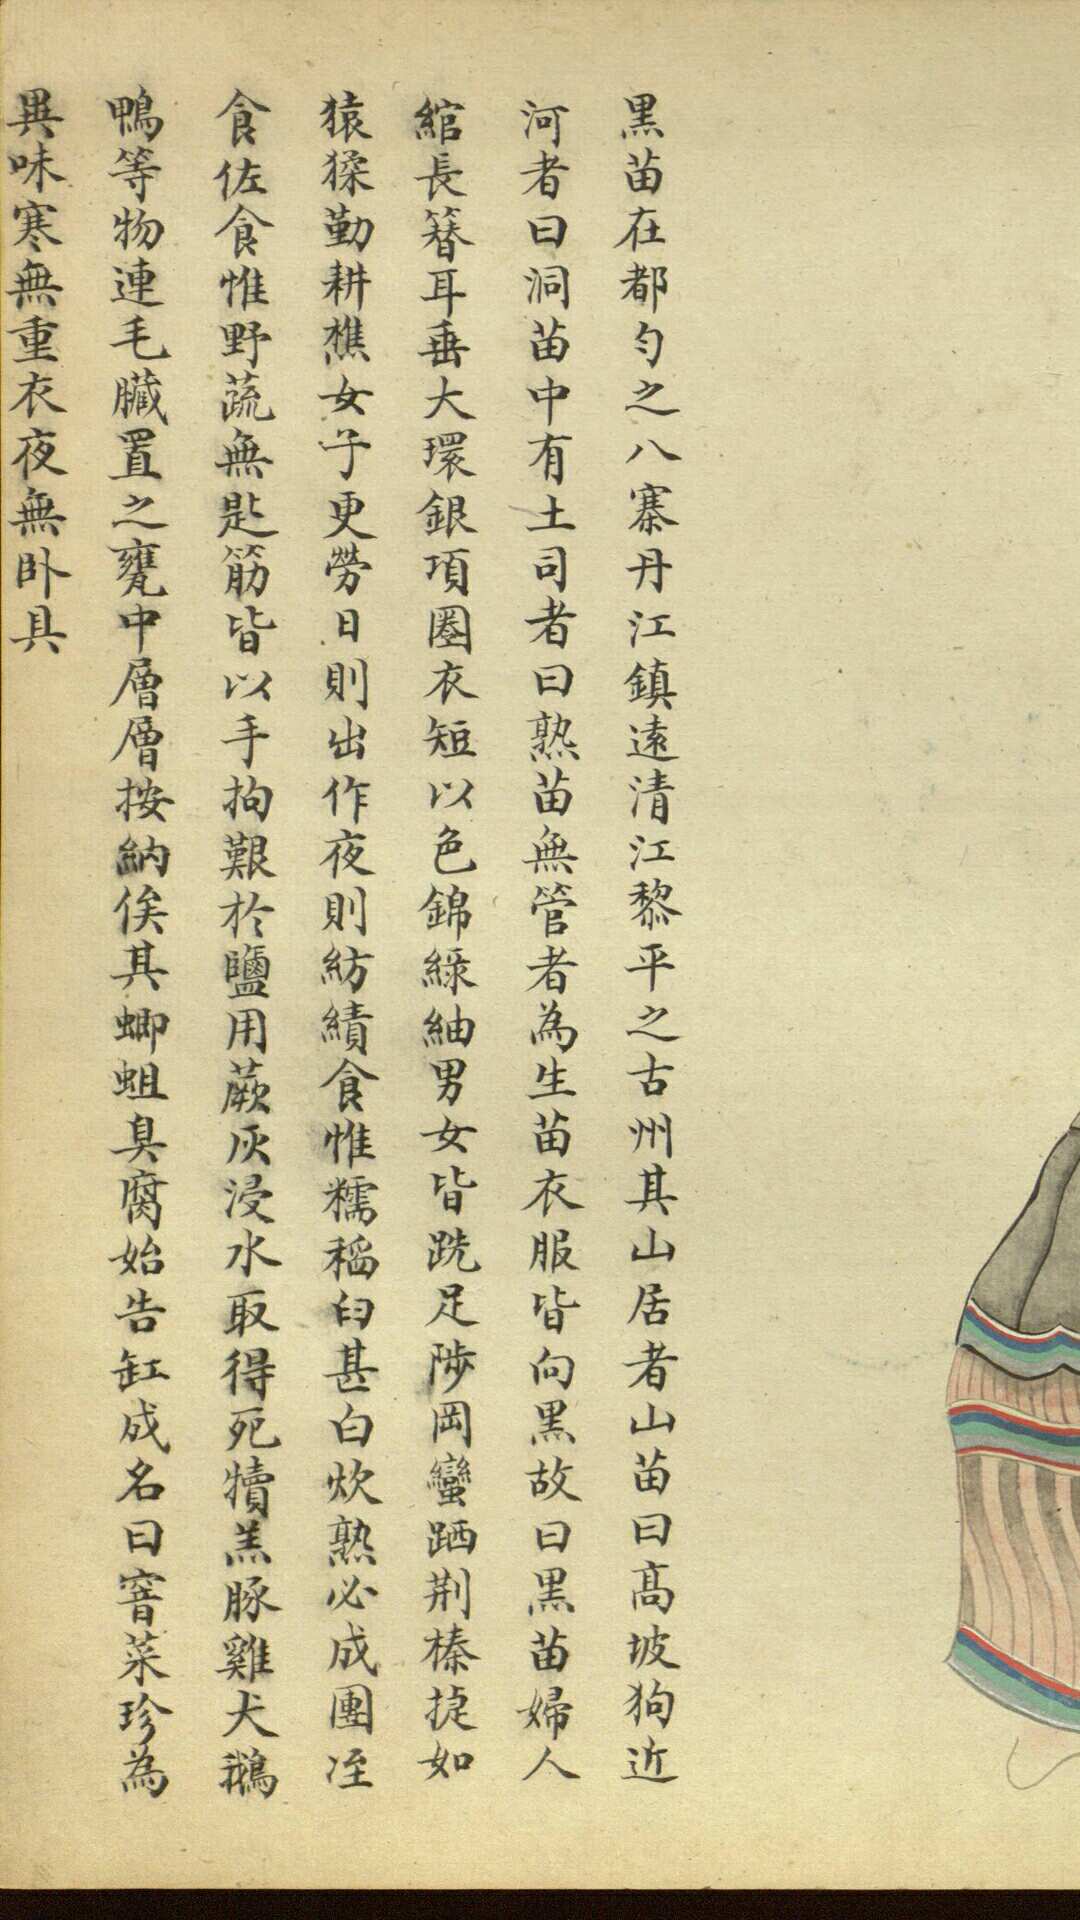 黑苗在都勻之八寨丹江鎮遠清江黎平之古州其山居者山苗曰高坡狗近
河者曰洞苗中有土司者曰熟苗無管者為生苗衣服皆向黑故曰黑苗婦人
綰長簪耳垂大環銀項圈衣短以色錦綠紬男女皆跣足陟岡巒跴荆榛捷如
猿猱勤耕樵女子更勞日則出作夜則紡績食惟糯稻臼甚白炊熟必成團冷
食佐食惟野蔬無匙筯皆以手拘艱於鹽用蕨灰浸水取得死犢羔豚雞犬鵝
鴨等物連毛臟置之甕中層層按納俟其蝍蛆臭腐始告缸成名曰䤃菜珍為
異味寒無重衣夜無卧具